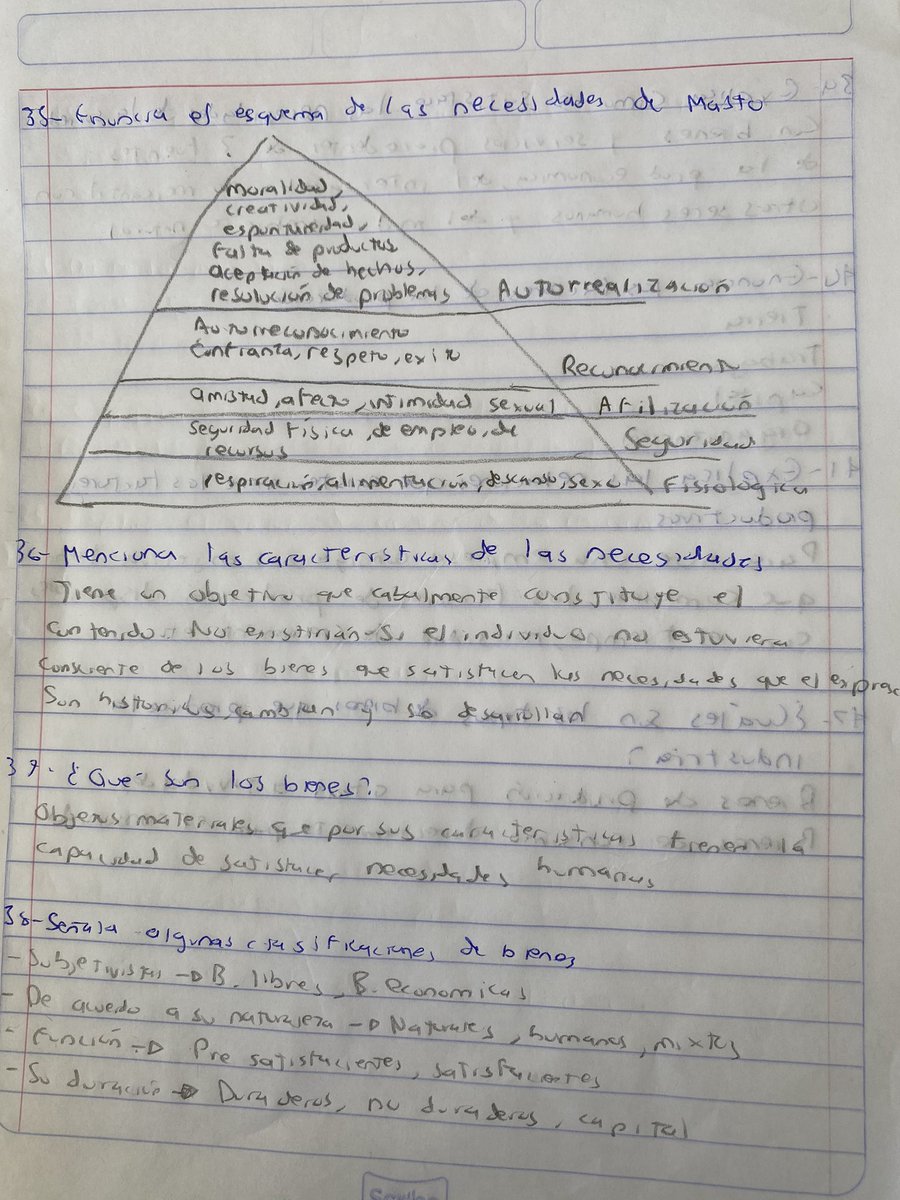 35- Enuncia el esquema de las necesidades de Maslo
moralidad,
creatividad,
espuntuneidad,
Falta de productus
aceptación de hechos,
resolución de problemas Autorrealización
Autorreconocimiento
Confianza, respeto, exito
Reconocimiento
amistad, afecto, intimidad sexual Afilización
Seguridad física, de empleo, de
recursos
Seguridad
respiración, alimentación, descanso, sexo Fisiológica
36- Menciona las características de las necesidades
Tiene un objetivo que cabalmente constituye el
contenido. No existirían si el individuo no estuviera
consciente de los bienes que satisfacen las necesidades que el expresa
Son historicas, cambian y se desarrollan
37- ¿Qué son los bienes?
Objetos materiales que por sus características tienen la
capacidad de satisfacer necesidades humanas
38- Señala algunas clasificaciones de bienes
- Subjetivistas → B. libres, B. economicas
- De acuerdo a su naturaleza → Naturales, humanos, mixtos
- Función → Pre satisfacientes, satisfacientes
- Su duración → Duraderos, no duraderos, capital